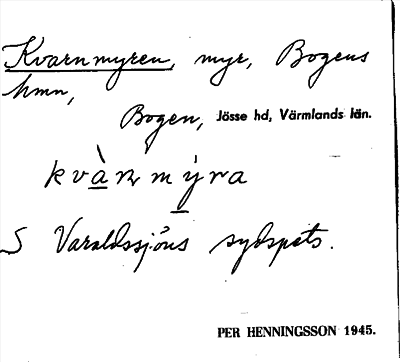 Kvarnmyren, myr, Bogens
hmn,
Bogen, Jösse hd, Värmlands län.
kvàrn mýra
S Varaldssjöns sydspets.
PER HENNINGSSON 1945.